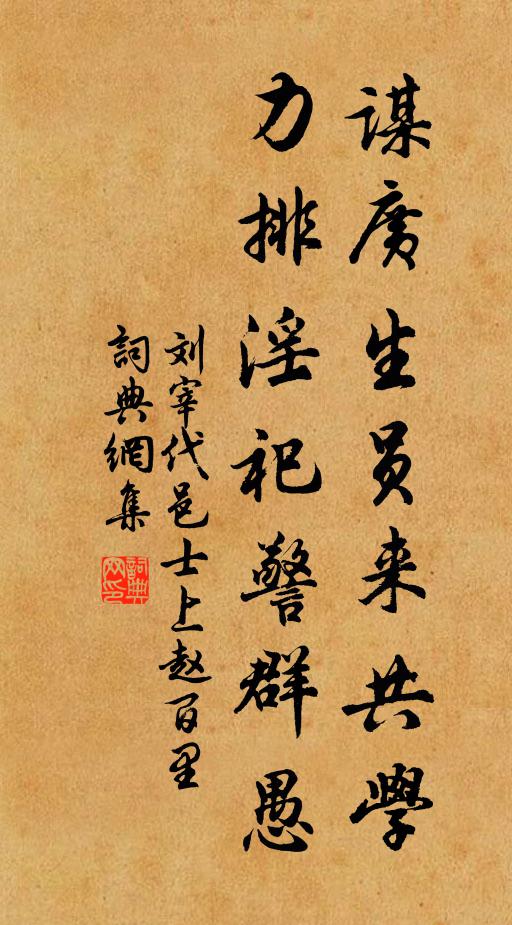 謀廣生员来共學
力排淫祀警群愚
刘宰代邑士上赵百里
詞典網集
詞典网印